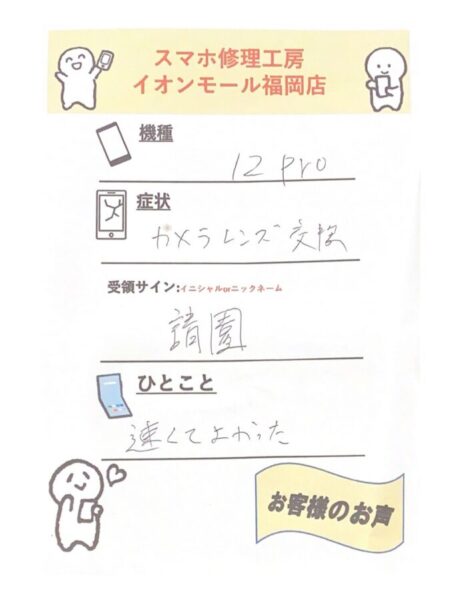 スマホ修理工房
イオンモール福岡店
機種
12 pro
症状
カメラレンズ交換
受領サイン:イニシャルorニックネーム
請園
ひとこと
速くてよかった
お客様のお声